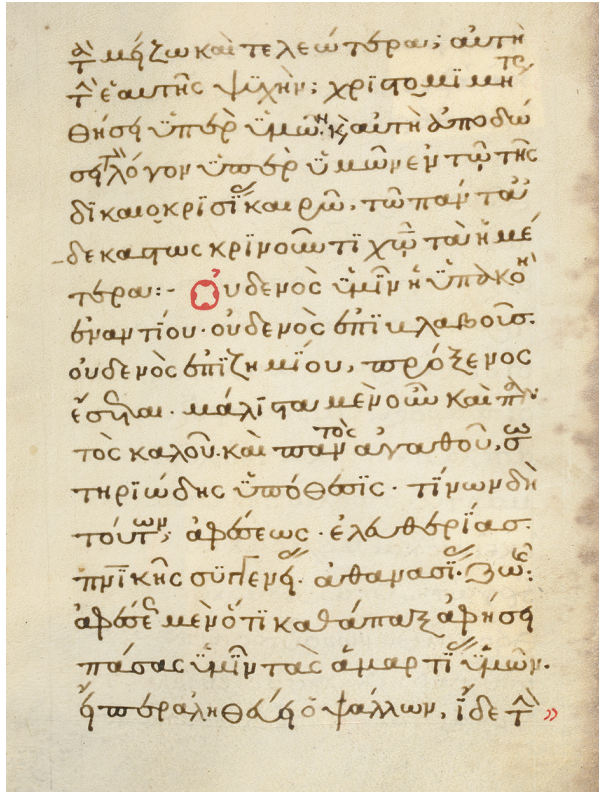 τὰ μείζω καὶ τελεώτερα; αὐτὴ
τὴν ἑαυτῆς ψϊχὴν; χρϊστομϊμήτως
θήσει ϋπὲρ ϋμῶν; καὶ αὐτὴ ἀποδώ
σει τὸν λόγον ϋπὲρ ϋμῶν ἐν τῷ τῆς
δϊκαιοκρϊσίας καιρῶ, τῶ πάντα
δεκαστως κρϊνοῦντϊ χῷ τὰ ἡμέ
τερα:- Οὐδενὸς ϋμῖν ἡ ϋπακοὴ
ἐναντίου· οὐδενὸς ἐπϊβλαβοῦς·
οὐδενὸς ἐπϊζημίου, πρόξενος
ἔσται· μάλϊστα μὲν οὖν καὶ παν
τὸς καλοῦ· καὶ παντὸς ἀγαθοῦ, σω
τηρϊώδης ϋπόθεσϊς· τίνων δὴ
τούτων; ἀφέσεως· ἐλευθερίας·
πνϊκῆς συγγενείας· ἀθανασίας· ζωῆς:
ἀφέσεως μὲν ὅτϊ καθάπαξ ἀφήσει
πάσας ϋμῖν τὰς ἁμαρτίας ϋμῶν·
εἴπερ ἀληθεύει ὁ ψάλλων, ἴδε τὴν